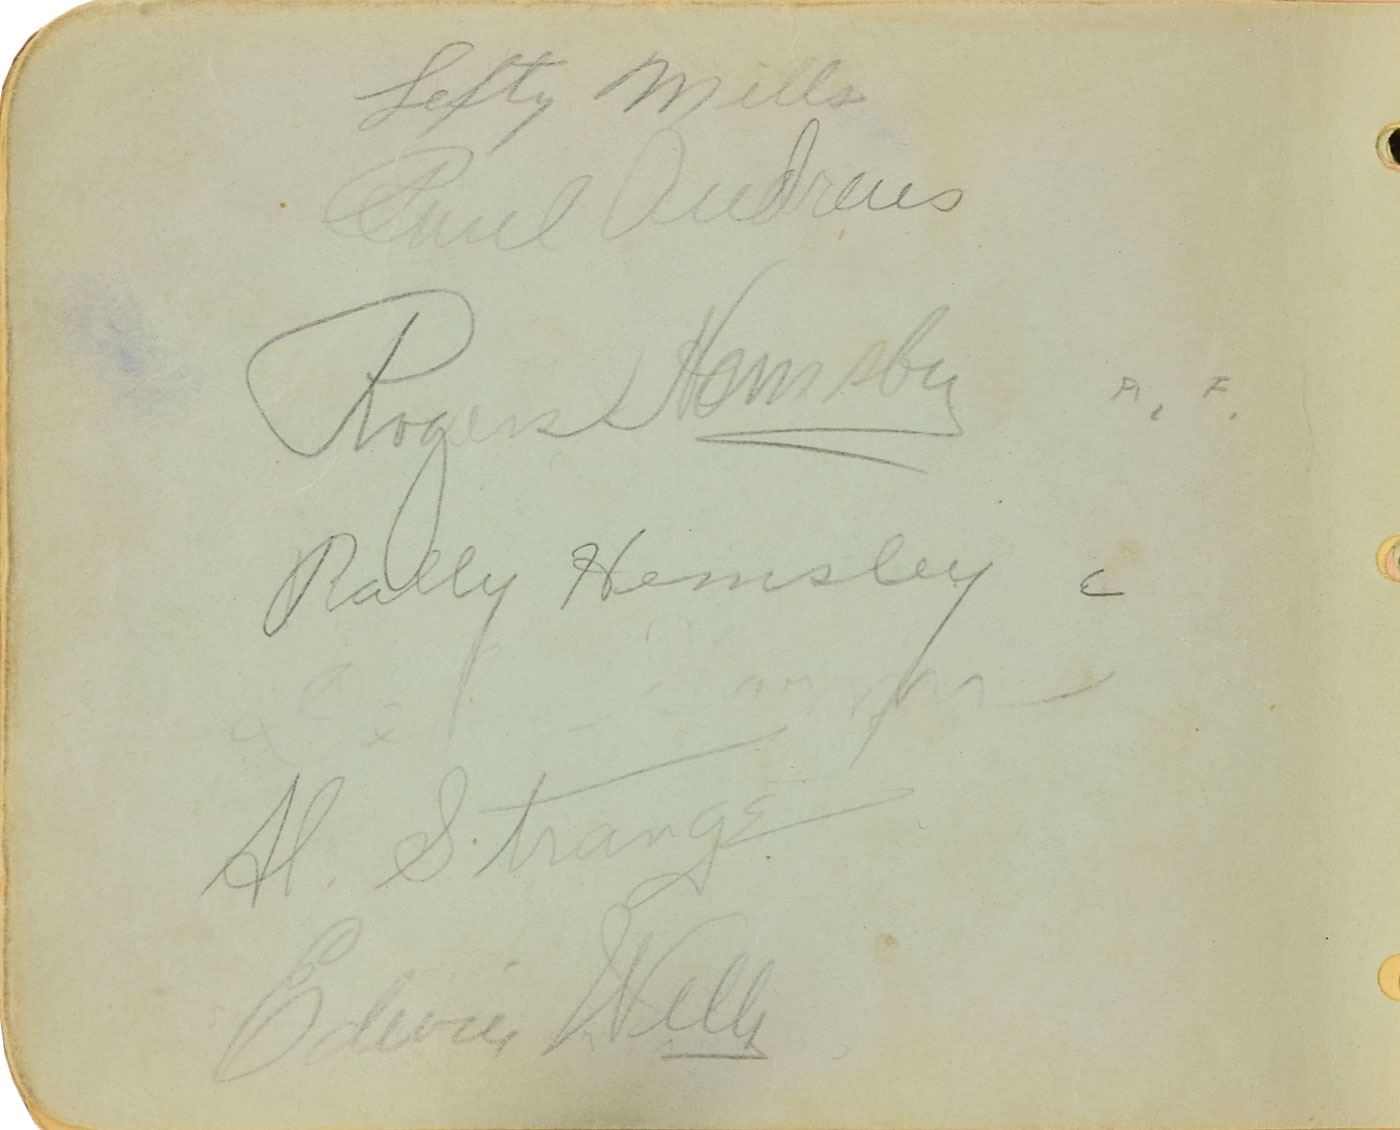 Lefty Mills
Paul Andrews
Rogers Hornsby
Rolly Hemsley c
Al. Strange
Edwin Wells